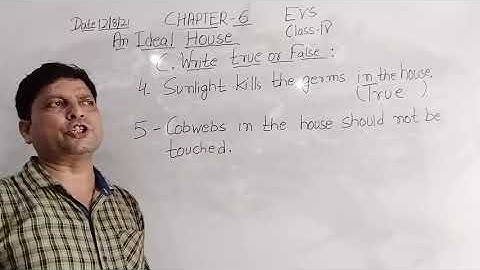 Date 12/8/21 CHAPTER-6 EVS
An Ideal House Class-IV
C. Write true or False:
4. Sunlight kills the germs in the house.
(True )
5-Cobwebs in the house should not be
touched.